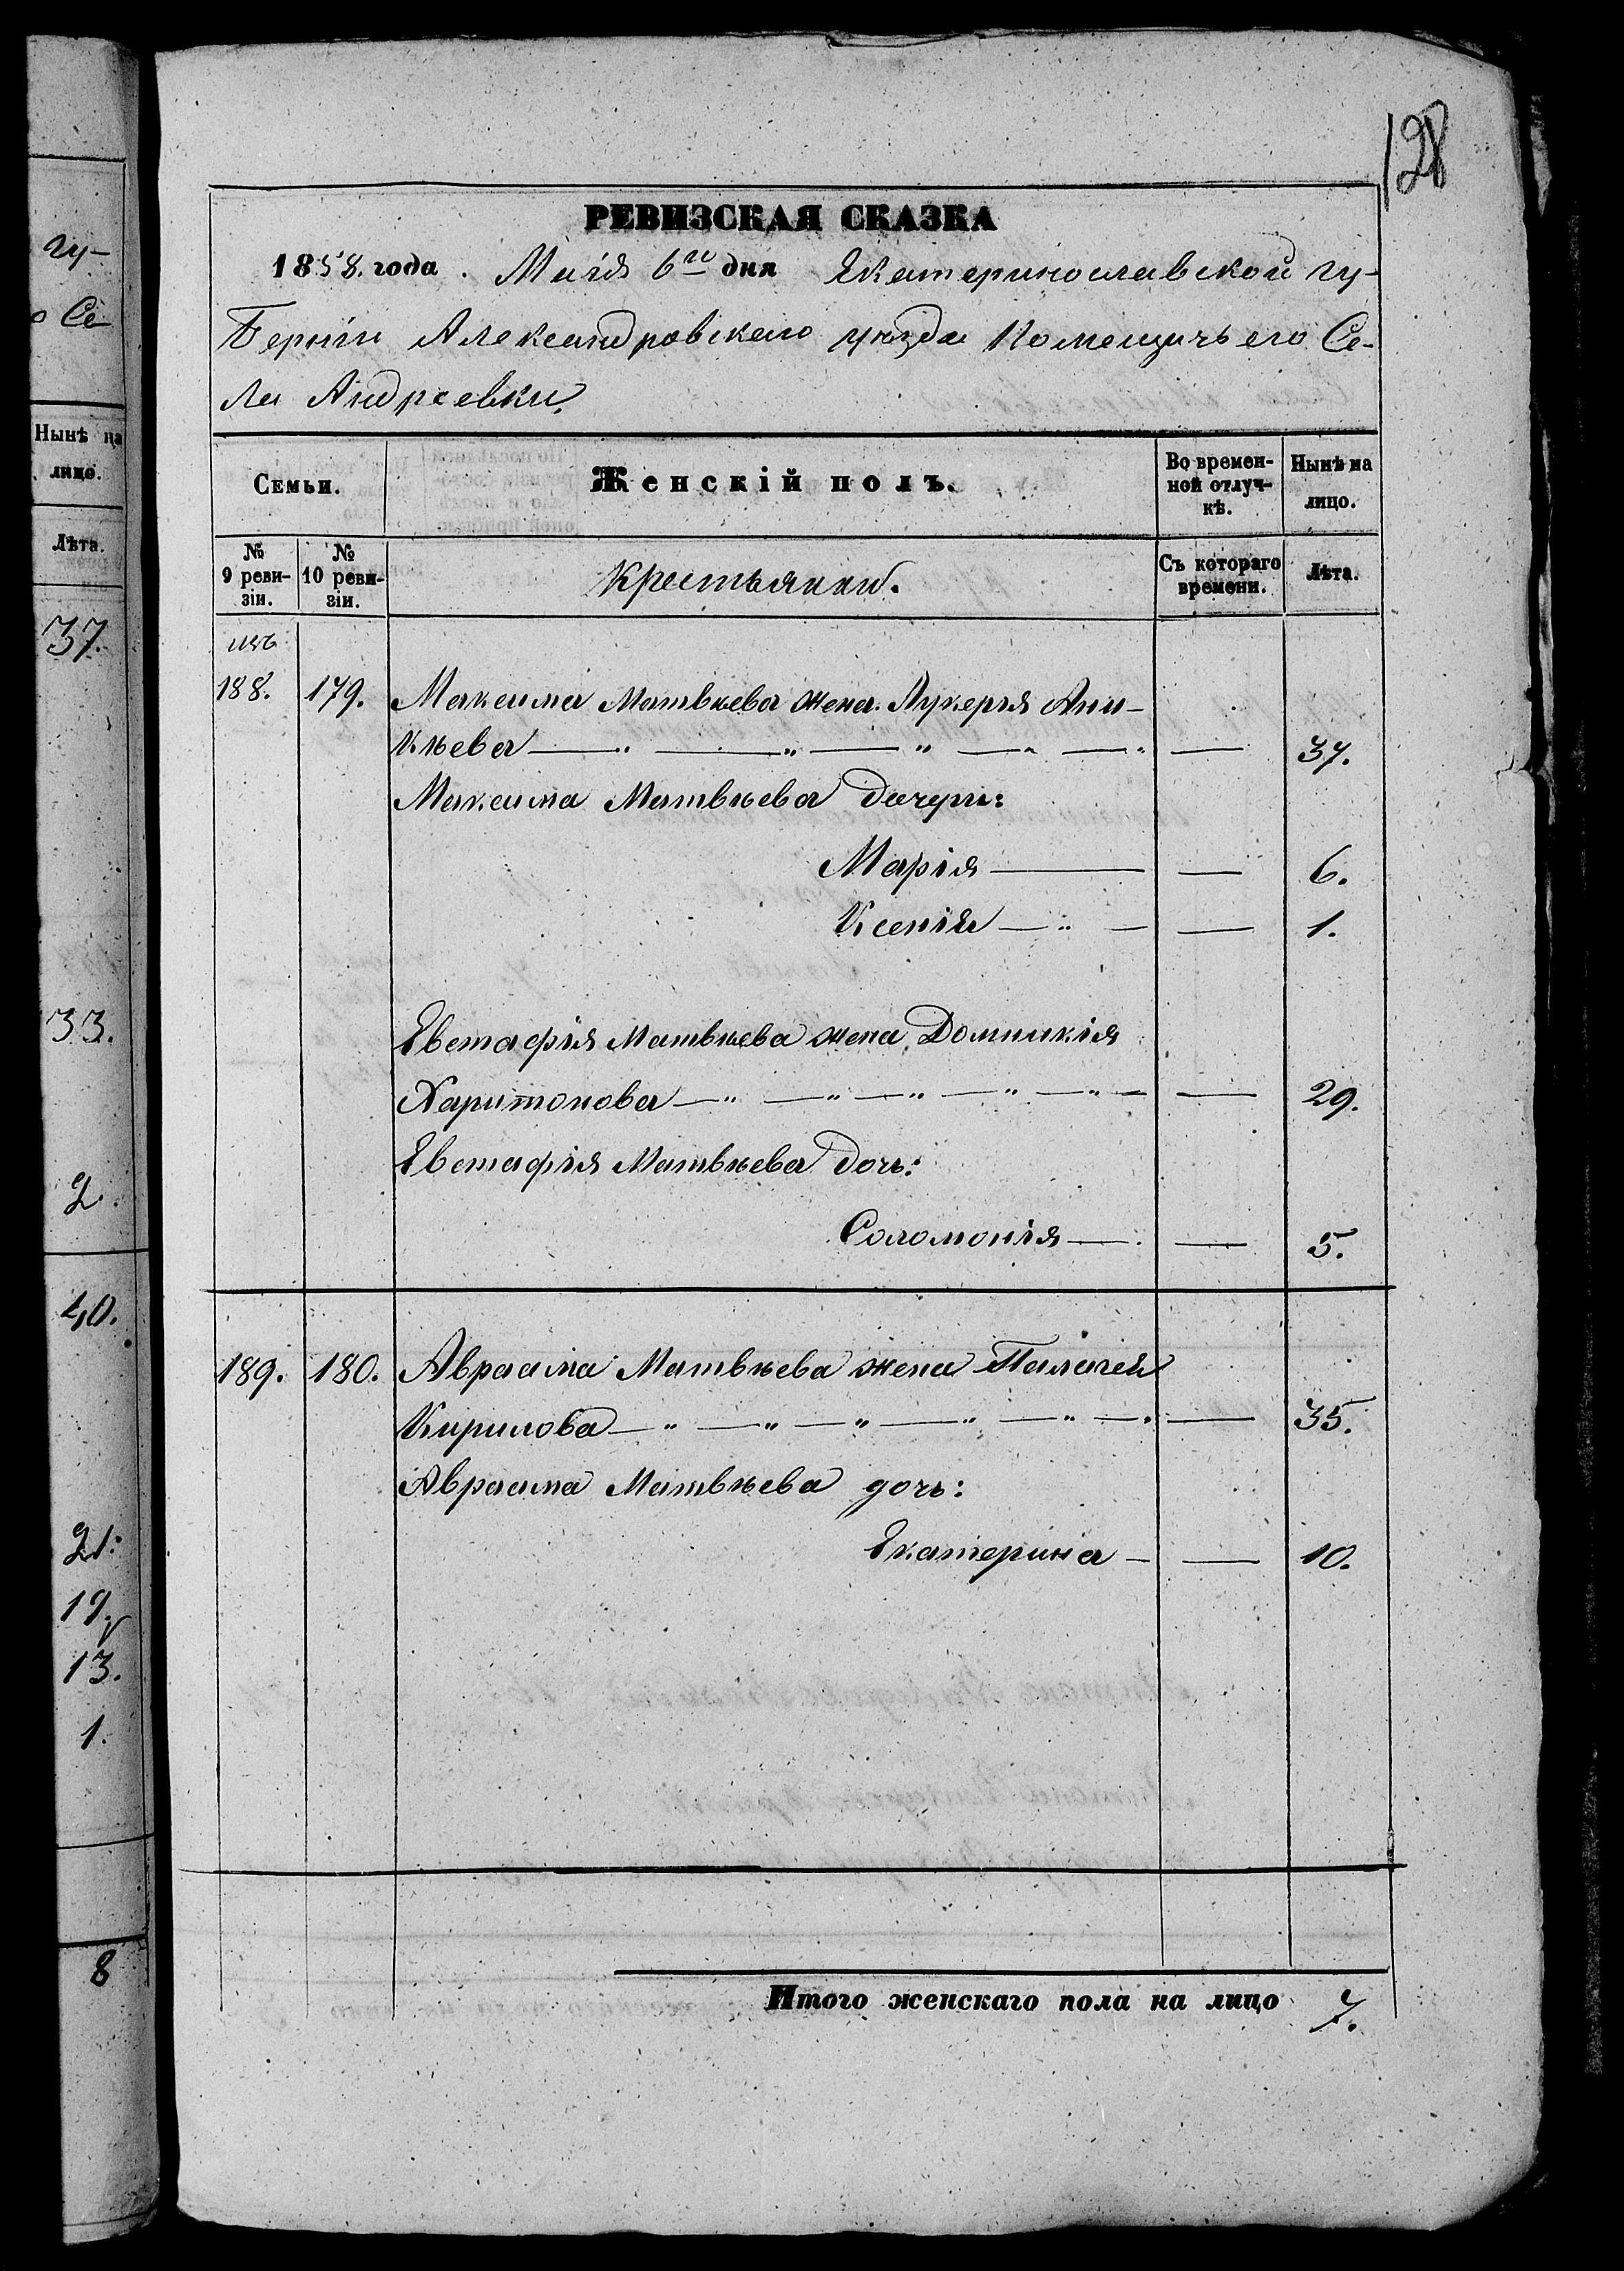 гу-
Се
Нынѣ на
лицо.
Лѣта.
37.
33.
2.
40.
21.
19.
13.
1.
8
128
РЕВИЗСКАЯ СКАЗКА
1858. года. Маія 6го дня Екатеринославской гу-
берніи Александровскаго уѣзда Помещичьего Се-
ла Андреевки.
Семьи. Женскій полъ. Во времен- Нынѣ на
ной отлуч- лицо.
кѣ.
№ № Крестьянки. Съ котораго Лѣта.
9 реви- 10 реви- времени.
зіи. зіи.
изъ
188. 179. Максима Матвѣева жена Лукерія Ани-
кѣева — 37.
Максима Матвѣева дочери:
Марія — 6.
Ксенія — 1.
Евстафія Матвѣева жена Домникія
Харитонова — 29.
Евстафія Матвѣева дочь:
Соломонія — 5.
189. 180. Авраама Матвѣева жена Палагея
Кирилова — 35.
Авраама Матвѣева дочь:
Екатерина — 10.
Итого женскаго пола на лицо 7.